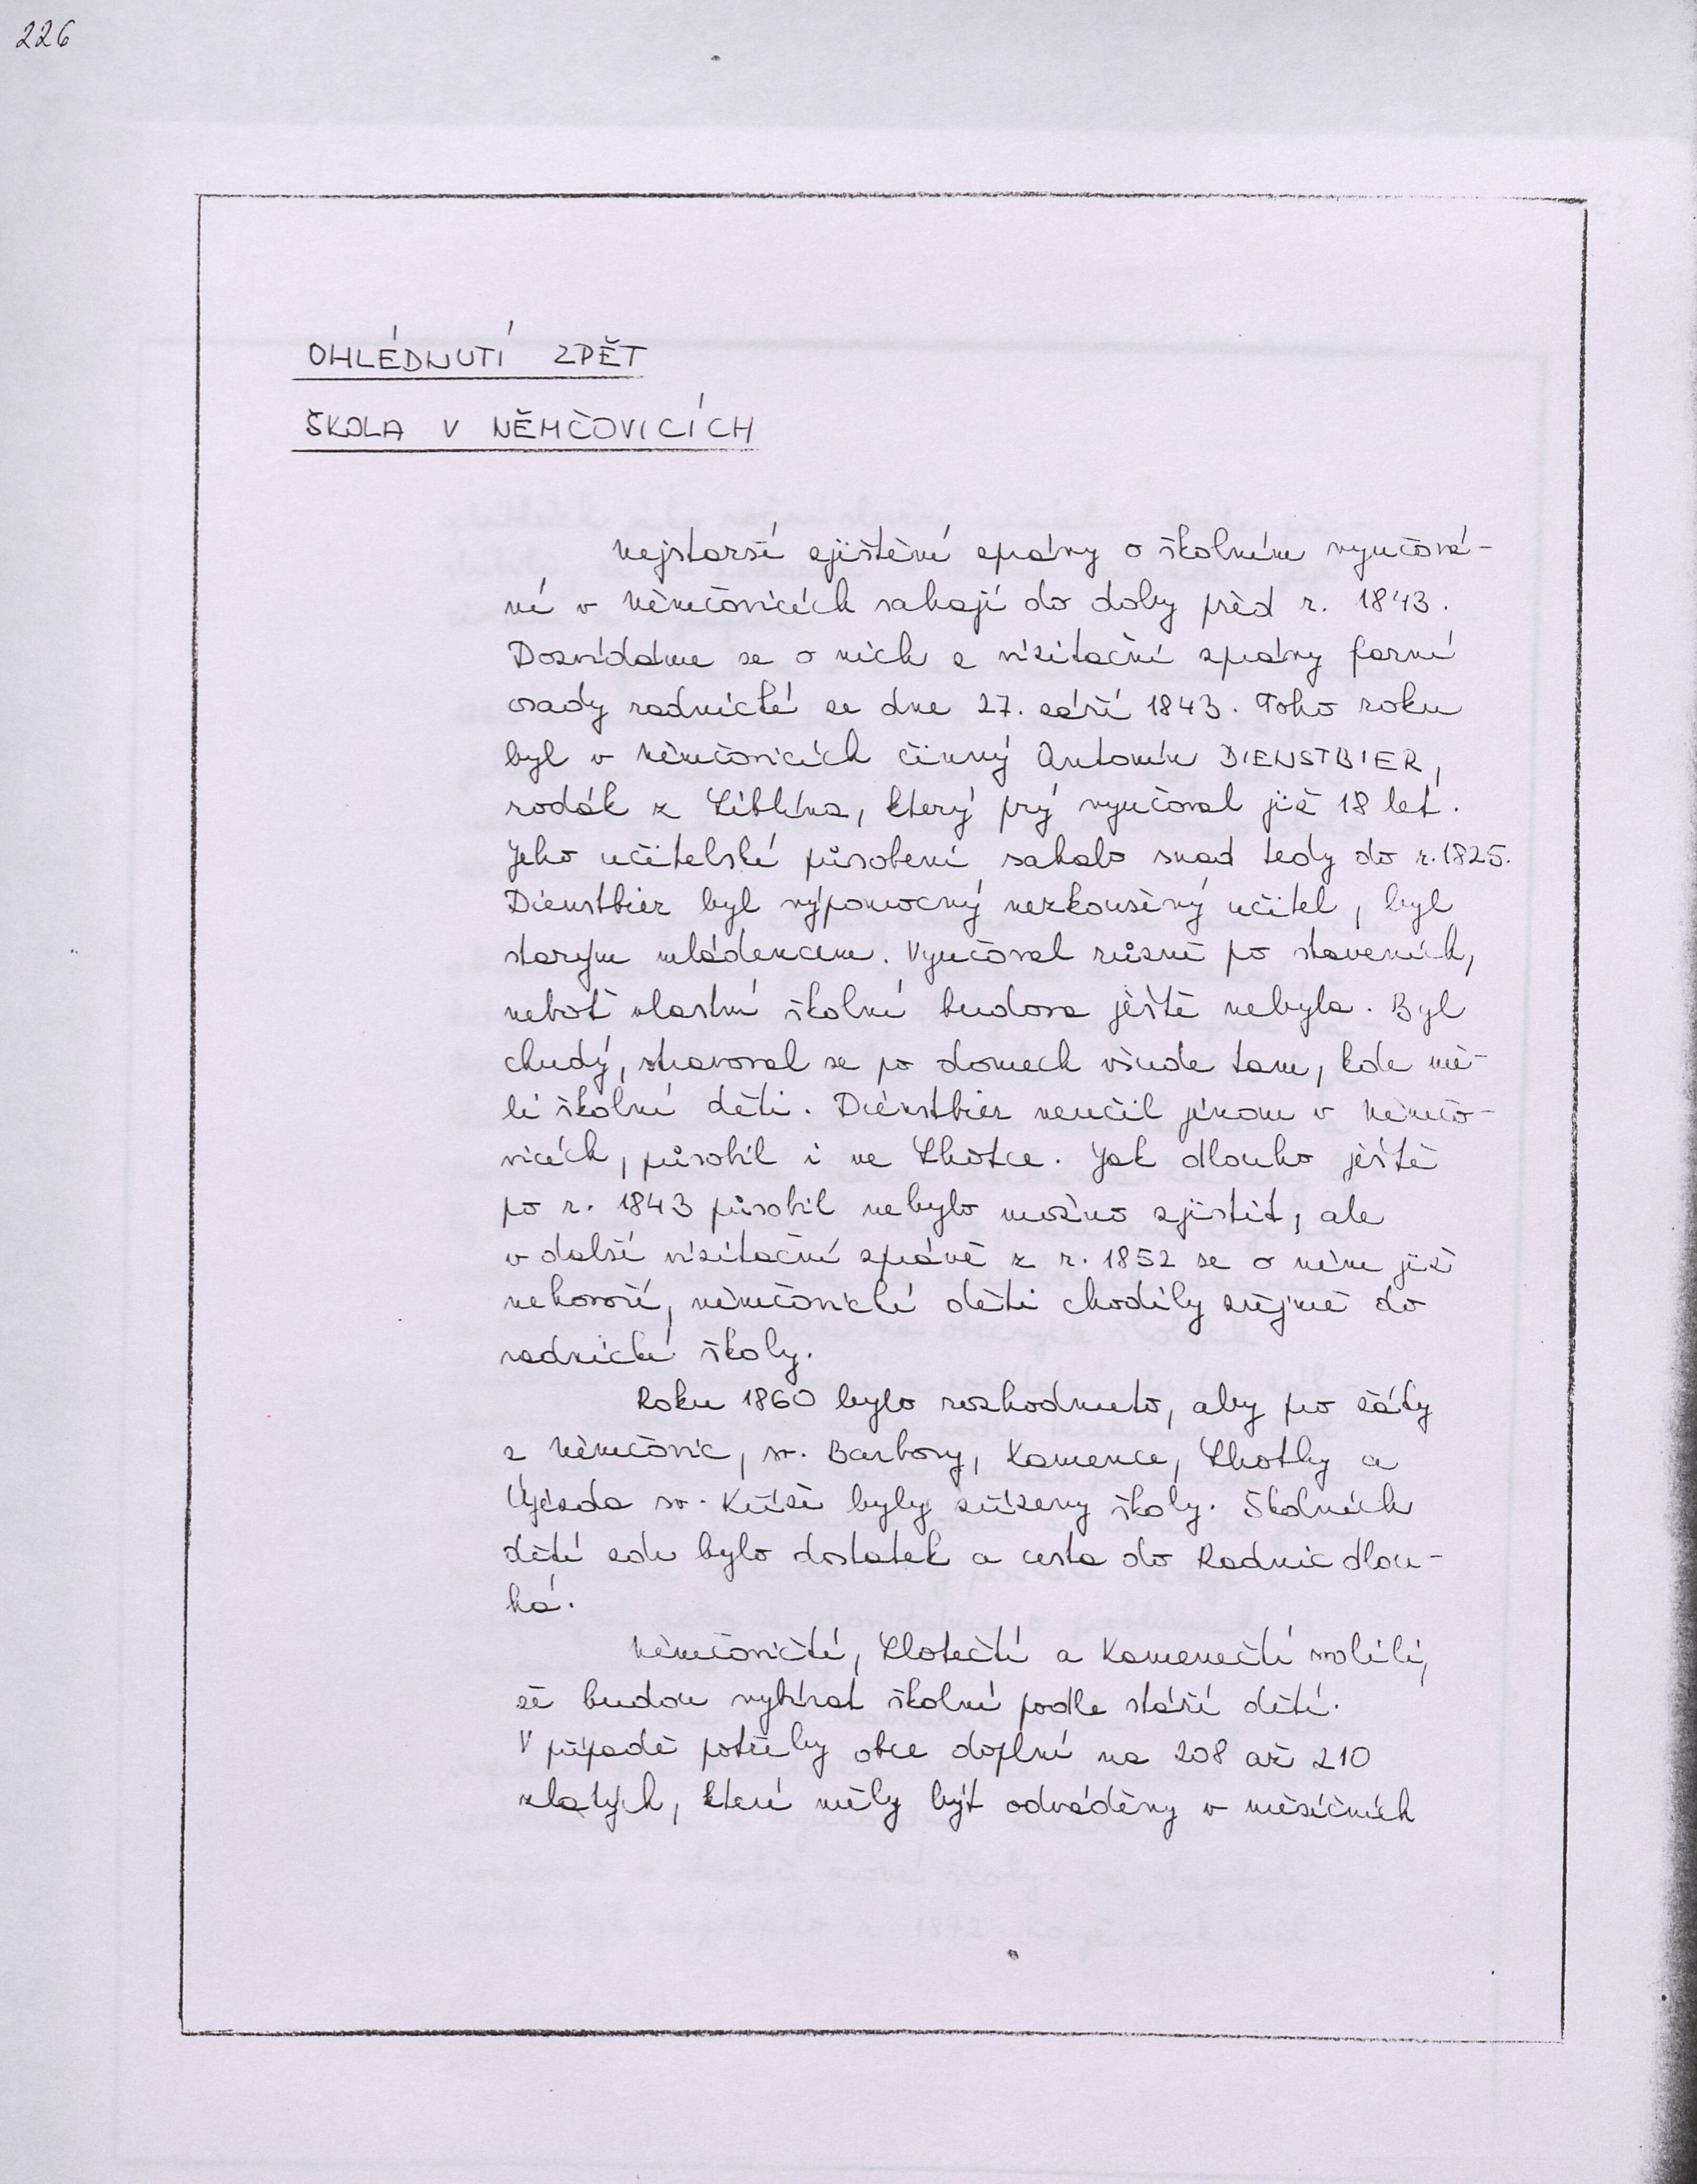 226
OHLÉDNUTÍ ZPĚT
ŠKOLA V NĚMČOVICÍCH
Nejstarší zjištěné zprávy o školním vyučová-
ní v Němčovicích sahají do doby před r. 1843.
Dozvídáme se o nich z visitační zprávy farní
osady radnické ze dne 27. září 1843. Toho roku
byl v Němčovicích činný Antonín DIENSTBIER,
rodák z Liblína, který prý vyučoval již 18 let.
Jeho učitelské působení sahalo snad tedy do r. 1825.
Dienstbier byl výpomocný nezkoušený učitel, byl
starým mládencem. Vyučoval různě po staveních,
neboť vlastní školní budova ještě nebyla. Byl
chudý, stravoval se po domech všude tam, kde mě-
li školní děti. Dienstbier neučil jenom v Němčo-
vicích, působil i ve Lhotce. Jak dlouho ještě
po r. 1843 působil nebylo možno zjistit, ale
v další visitační zprávě z r. 1852 se o něm již
nehovoří, němčovické děti chodily zřejmě do
radnické školy.
Roku 1860 bylo rozhodnuto, aby pro žáky
z Němčovic, sv. Barbory, Kamence, Lhotky a
Újezda sv. Kříže byly zřízeny školy. Školních
dětí zde bylo dostatek a cesta do Radnic dlou-
há.
Němčovičtí, Lhotečtí a Kamenečtí svolili,
že budou vybírat školné podle stáří dětí.
V případě potřeby obce doplní na 208 až 210
zlatých, které měly být odváděny v měsíčních